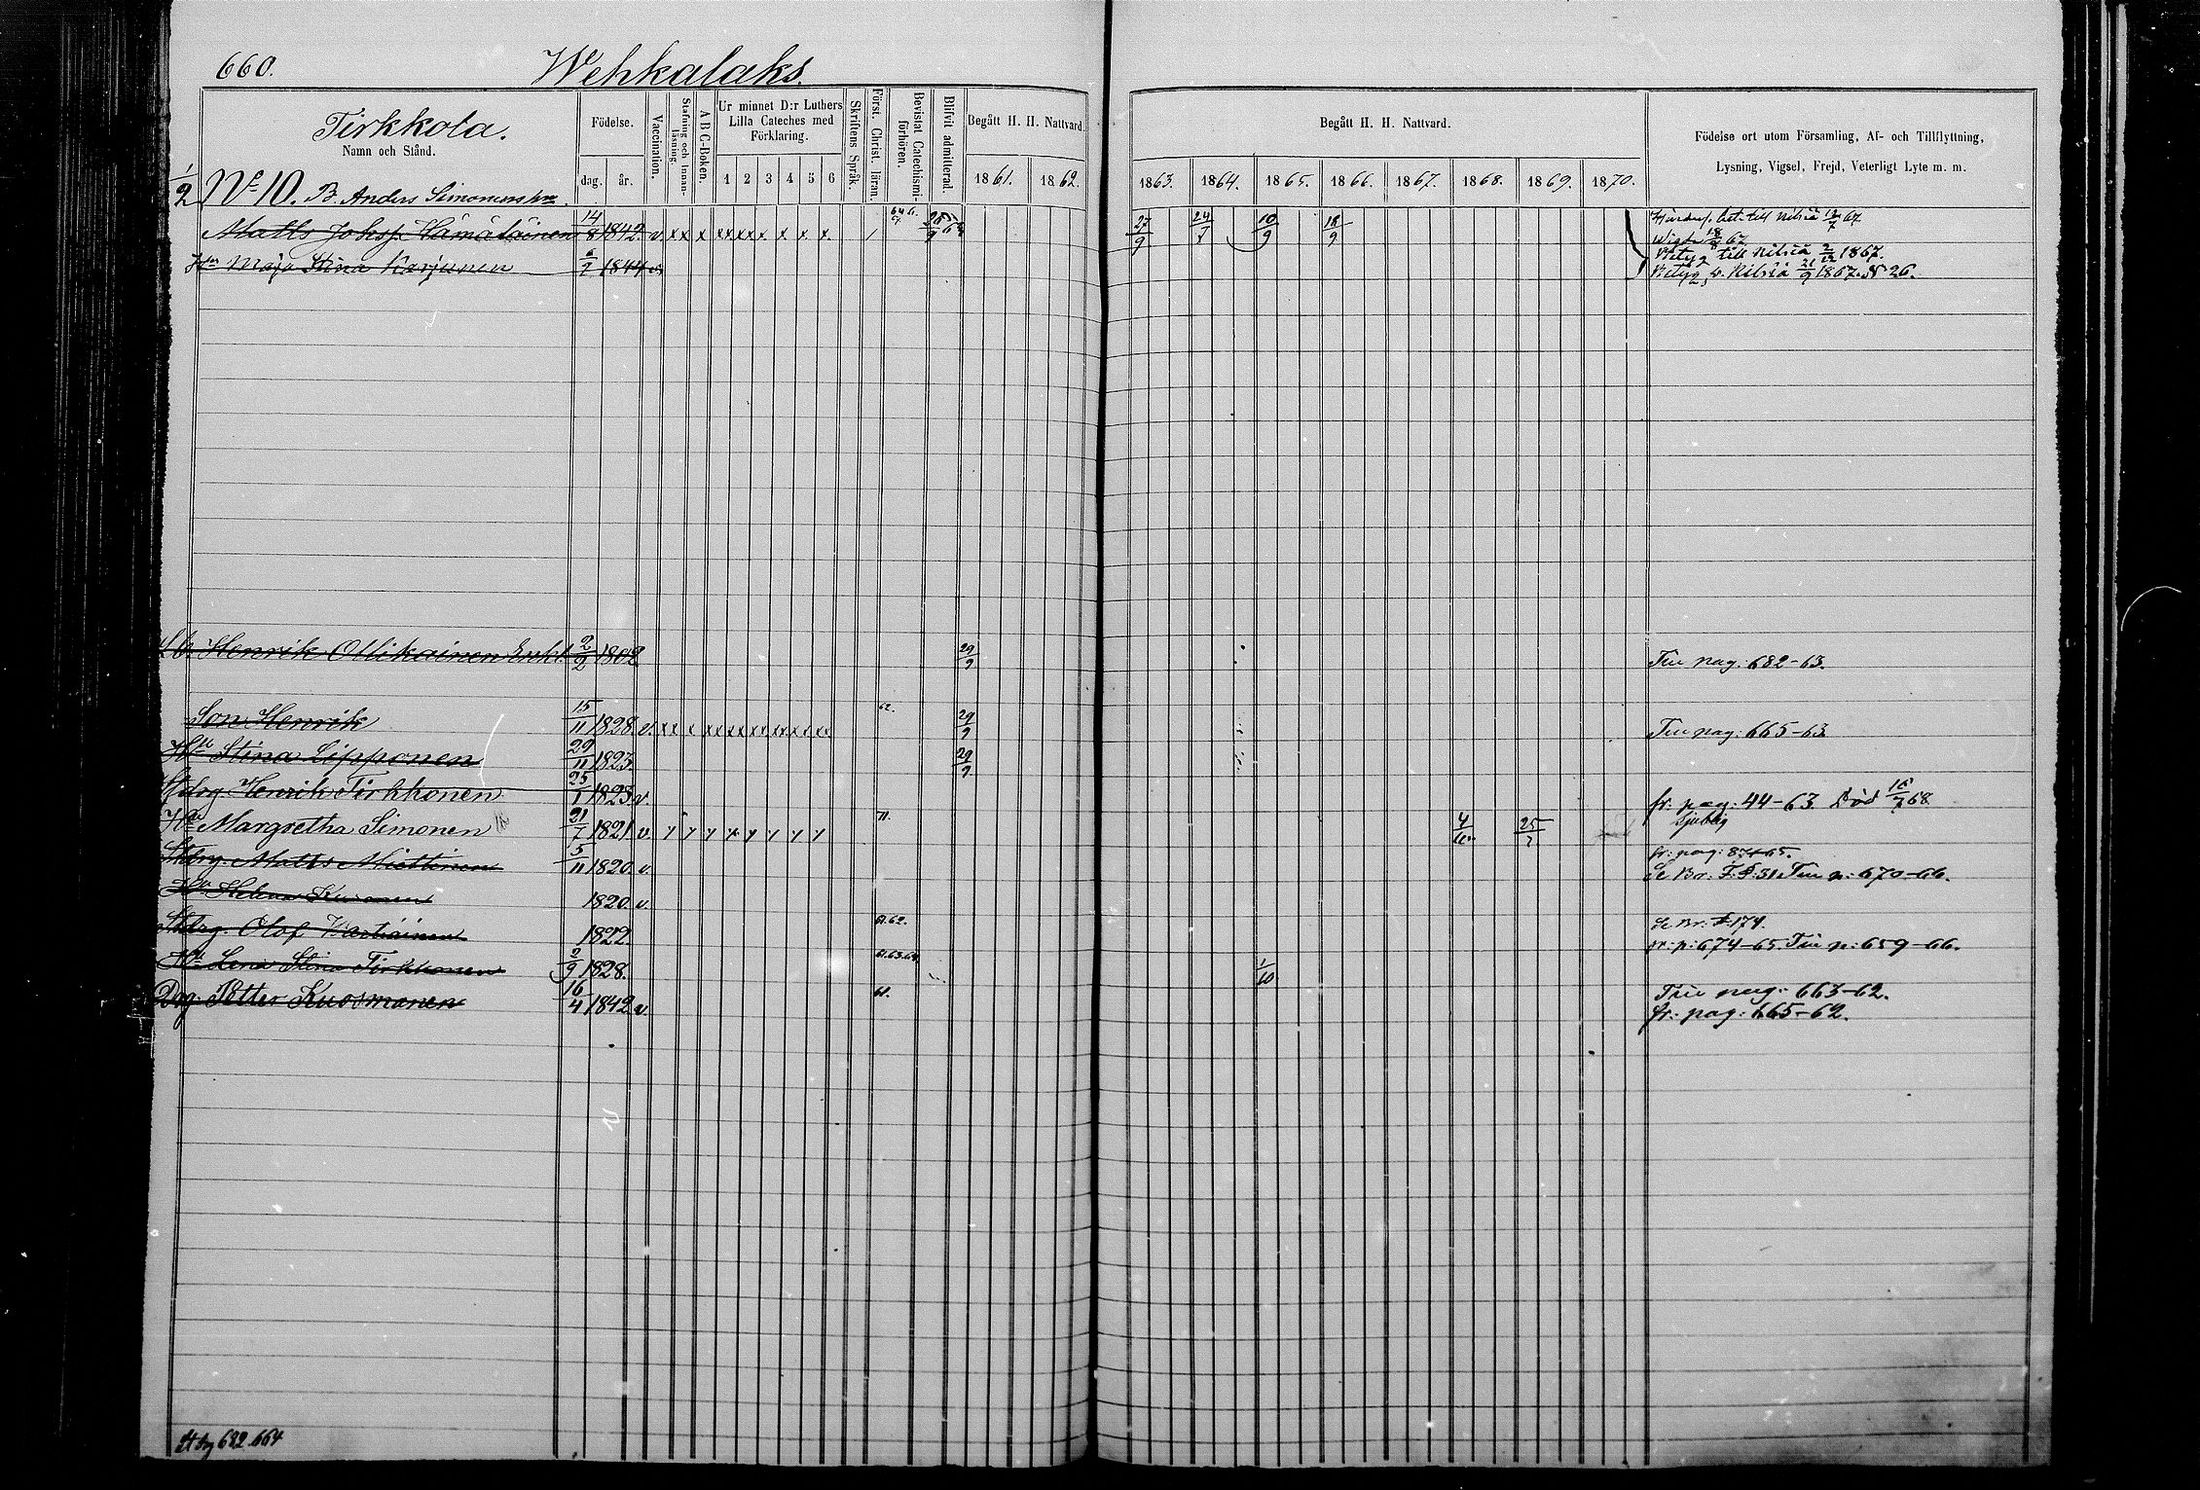 660. Wehkalaks.
Tirkkola.
Namn och Stånd.
Födelse.
dag. år.
Vaccination.
Stafning och Innan-läsning.
A B C-Boken.
Ur minnet D:r Luthers Lilla Cateches med Förklaring.
1 2 3 4 5 6
Skriftens Språk.
Först. Christ. läran.
Bevistat Catechismi-förhören.
Blifvit admitterad.
Begått H. H. Nattvard.
1861. 1862.
Begått H. H. Nattvard.
1863. 1864. 1865. 1866. 1867. 1868. 1869. 1870.
Födelse ort utom Församling, Af- och Tillflyttning,
Lysning, Vigsel, Frejd, Veterligt Lyte m. m.
1/2 No 10. B. Anders Simonens
Matts Hämäläinen 14/8 1842. v. x x x x x x x x x x x. 27/9 24/7 10/9 18/9 till Nilsiä 67
67
Hu Maja Stina Karjunen 1844 v. Betyg till Nilsiä 1867.
Nilsiä 1867. N 26.
Henrik Ollikainen Enkl. 2/2 1802 29/9 Tin pag: 682-63.
Son Henrik 15/11 1828. v. x x x x x x x x x x 62. 29/9 Tin pag: 665-63
Hu Stina Lipponen 29/11 1823. 29/9
Henrik Tirkkonen 25/1 1823 v. fr. pag: 44-63 Död 68
Hu Margretha Simonen 21/7 1821 v. 71. 4/10 25/7 Sjuklig
Matts Miettinen 5/11 1820. v. fr: pag: 87-65.
Tin p: 670-66.
Hu Helena 1820. v.
Olof 1822. 61.62. 174.
fr: p: 674-65. Tin p: 659-66.
Hu Lena Stina Tirkkonen 2/9 1828. 61.63.64. 1/10
Drg Petter Kuosmanen 16/4 1842 v. 61. Tin pag: 663-62.
fr: pag: 665-62.
682.664